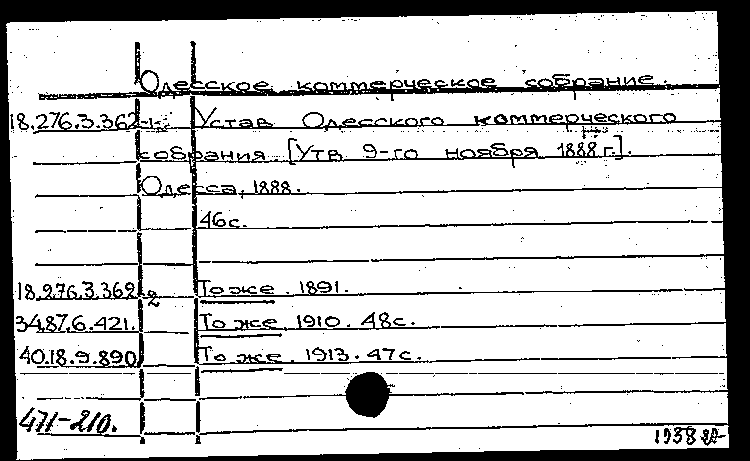 Одесское коммерческое собрание.
18.276.3.362-1 Устав Одесского коммерческого
собрания [Утв 9-го ноября 1888 г.].
Одесса, 1888.
46 с.
18.276.3.362 2 То же. 1891.
34.87.6.421. То же. 1910. 48 с.
40.18.9.890 То же. 1913. 47 с.
471-210.
1938